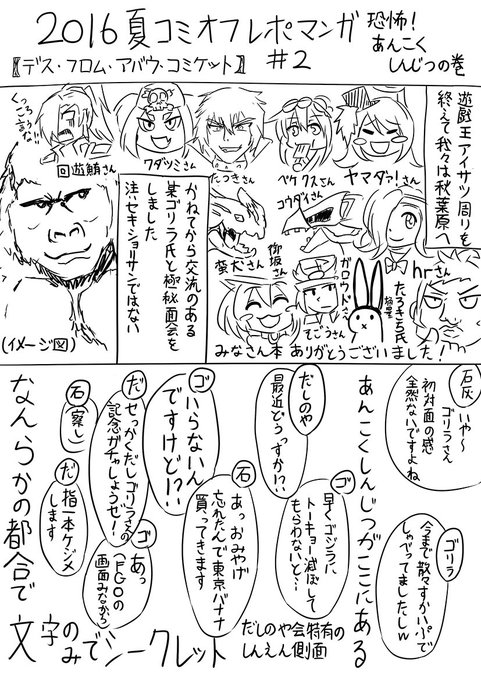 2016夏コミオフレポマンガ
#2
恐怖!
あんこく
しんじつの巻
〖デス・フロム・アバウ・コミケット〗
遊戯王アイサツ周りを
終えて我々は秋葉原へ
くっころうな!!
回遊鯖さん
ワダツミさん
たつきさん
ペケクスさん
ヤマダァ!さん
コウダイさん
柴犬さん
柳坂さん
ガロウドさん
hrさん
たろきち氏
てごうさん
みなさん本当ありがとうございました!
かねてから交流のある
某ゴリラ氏と極秘面会を
しました
注:セキショリサンではない
(イメージ図)
石灰
いや〜
ゴリラさん
初対面の感
全然ないですよね
ゴリラ
今まで散々すかいぷで
しゃべってましたしw
あんこくしんじつがここにある
だしのや
最近どうっすか!?
ゴ
早くゴジラに
トーキョー滅ぼして
もらわないと…
石
あっおみやげ
忘れたんで東京バナナ
買ってきます
ゴ
いらないん
ですけど!?
だ
せっかくだしゴリラさんの
記念ガチャしょうぜ!
ゴ
あっ
(FGOの
画面みながら
石
(察し
だ
指一本ケジメ
します
なんらかの都合で
文字の
みでシークレット
だしのや会特有の
しんえん側面